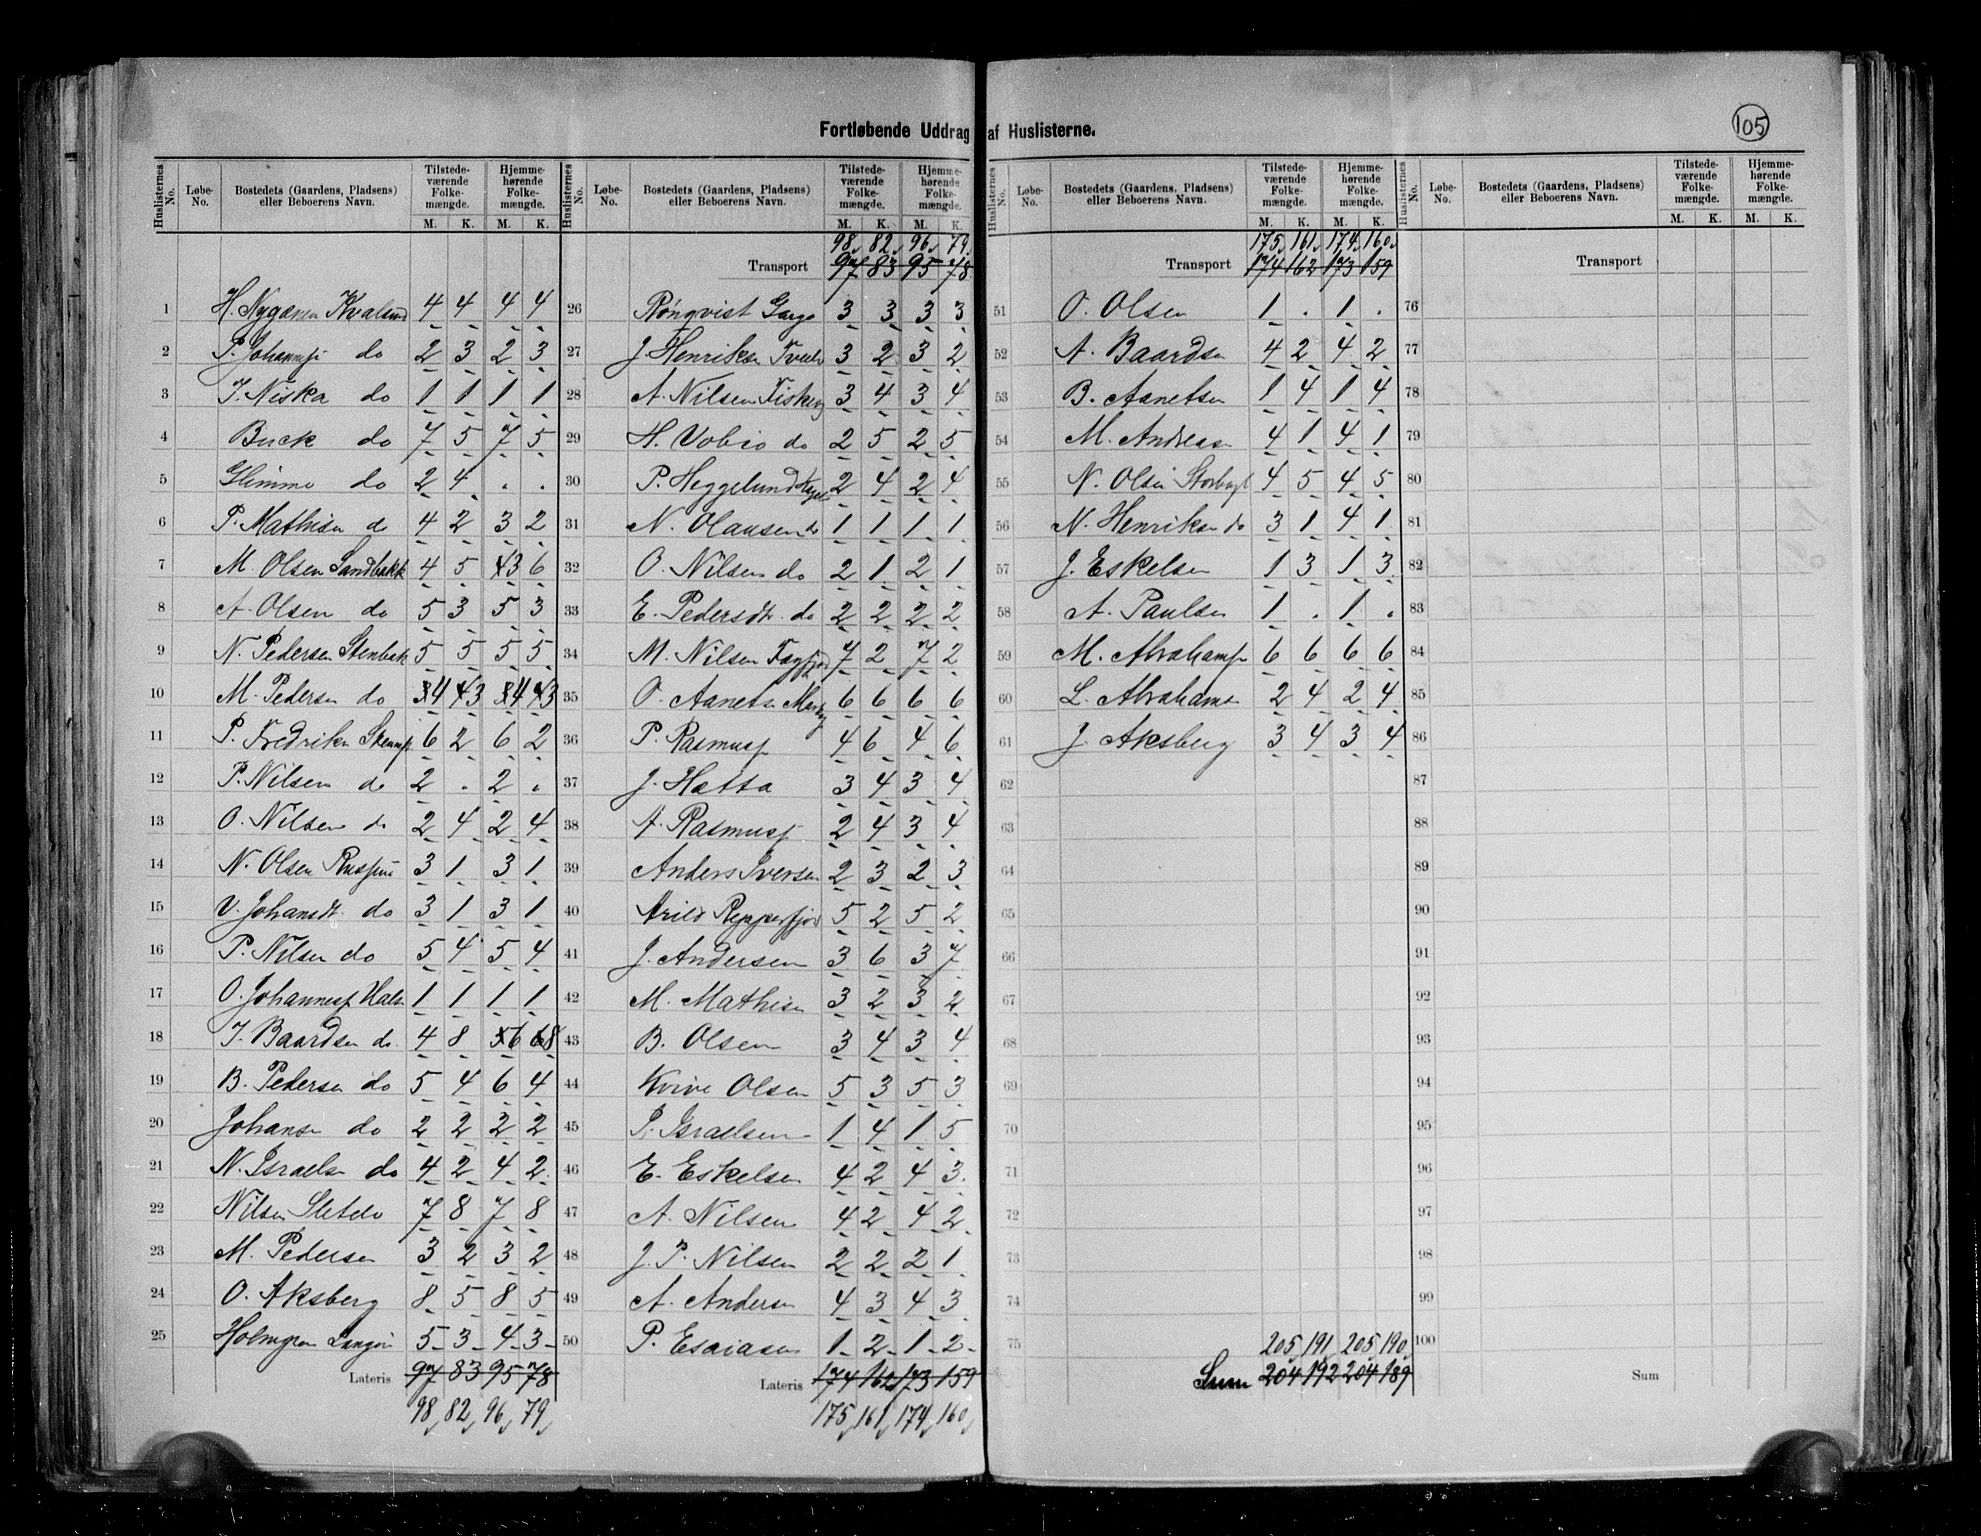 Fortløbende Uddrag af Huslisterne.
105
Huslisternes No. Løbe-No. Bostedets (Gaardens, Pladsens) eller Beboerens Navn. Tilstedeværende Folkemængde. M. K. Hjemmehørende Folkemængde. M. K.
1 H. Nygaren Kvalsund 4 4 4 4
2 P. Johannsf do 2 3 2 3
3 J. Niska do 1 1 1 1
4 Buck do 7 5 7 5
5 Glimme do 2 4 . .
6 P. Mathisn do 4 2 3 2
7 M. Olsen Sandbakk 4 5 3 6
8 A. Olsen do 5 3 5 3
9 N. Pedersen Stenbak 5 5 5 5
10 M. Pedersn do 4 3 4 3
11 P. Fredrikn 6 2 6 2
12 P. Nilsen do 2 . 2 .
13 O. Nilsen do 2 4 2 4
14 N. Olsen 3 1 3 1
15 V. Johansdt. do 3 1 3 1
16 P. Nilsen do 5 4 5 4
17 O. Johannesf 1 1 1 1
18 J. Baardsen do. 4 8 6 8
19 B. Pedersn do 5 4 6 4
20 Johansn do 2 2 2 2
21 N. Israelsn do 4 2 4 2
22 Nilsen 7 8 7 8
23 M. Pedersen 3 2 3 2
24 O. Aksberg 8 5 8 5
25 Holmgren 5 3 4 3
Lateris 97 83 95 78
98, 82, 96, 79,
Huslisternes No. Løbe-No. Bostedets (Gaardens, Pladsens) eller Beboerens Navn. Tilstedeværende Folkemængde. M. K. Hjemmehørende Folkemængde. M. K.
98, 82, 96, 79,
Transport 97 83 95 78
26 Rönqvist Gargo 3 3 3 3
27 J. Henriksn 3 2 3 2
28 A. Nilsen 3 4 3 4
29 H. Vobio do 2 5 2 5
30 P. Heggelund 2 4 2 4
31 N. Olausen do 1 1 1 1
32 O. Nilsen do 2 1 2 1
33 E. Pedersdt. do 2 2 2 2
34 M. Nilsen Fægfjord 7 2 7 2
35 O. Aanetsn 6 6 6 6
36 P. Rasmusf 4 6 4 6
37 J. Hætta 3 4 3 4
38 A. Rasmusf 2 4 3 4
39 Anders Iversen 2 3 2 3
40 Arild Repperfjord 5 2 5 2
41 J. Andersen 3 6 3 7
42 M. Mathisn 3 2 3 2
43 B. Olsen 3 4 3 4
44 Kvive Olsen 5 3 5 3
45 P. Israelsen 1 4 1 5
46 E. Eskelsen 4 2 4 3
47 A. Nilsen 4 2 4 2
48 J. P. Nilsen 2 2 2 1
49 A. Andersn 4 3 4 3
50 P. Esaiasen 1 2 1 2
Lateris 174 162 173 159
175, 161, 174, 160,
Huslisternes No. Løbe-No. Bostedets (Gaardens, Pladsens) eller Beboerens Navn. Tilstedeværende Folkemængde. M. K. Hjemmehørende Folkemængde. M. K.
175, 161, 174, 160,
Transport 174 162 173 159
51 O. Olsen 1 . 1 .
52 A. Baardsn 4 2 4 2
53 B. Aanetsn 1 4 1 4
54 M. Andreasn 4 1 4 1
55 N. Olsn Storbugt 4 5 4 5
56 N. Henriksn do 3 1 4 1
57 J. Eskelsen 1 3 1 3
58 A. Paulsn 1 . 1 .
59 M. Abrahamf 6 6 6 6
60 L. Abrahamsn 2 4 2 4
61 J. Aksberg 3 4 3 4
62
63
64
65
66
67
68
69
70
71
72
73
74
75 205, 191, 205, 190,
Sum 204 192 204 189
Huslisternes No. Løbe-No. Bostedets (Gaardens, Pladsens) eller Beboerens Navn. Tilstedeværende Folkemængde. M. K. Hjemmehørende Folkemængde. M. K.
Transport
76
77
78
79
80
81
82
83
84
85
86
87
88
89
90
91
92
93
94
95
96
97
98
99
100
Sum